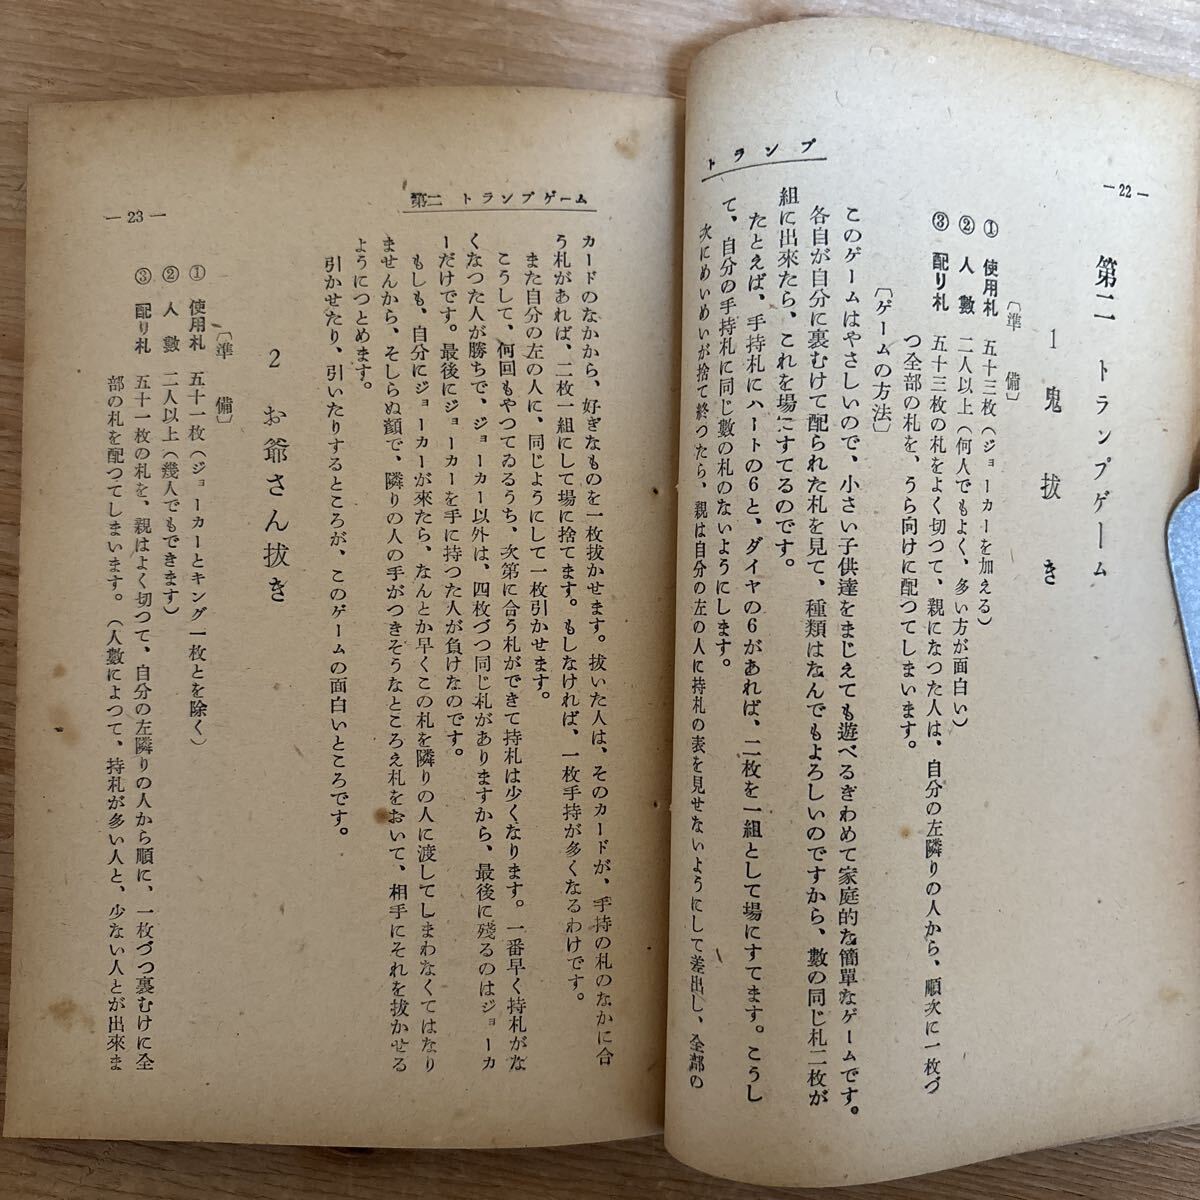 トランプ
―22―
第二　トランプゲーム
1　鬼抜き
〔準　備〕
① 使用札　五十三枚（ジョーカーを加える）
② 人　數　二人以上（何人でもよく、多い方が面白い）
③ 配り札　五十三枚の札をよく切つて、親になつた人は、自分の左隣りの人から、順次に一枚づ
つ全部の札を、うら向けに配つてしまいます。
〔ゲームの方法〕
このゲームはやさしいので、小さい子供達をまじえても遊べるぎわめて家庭的な簡單なゲームです。
各自が自分に裏むけて配られた札を見て、種類はなんでもよろしいのですから、數の同じ札二枚が
組に出來たら、これを場にすてるのです。
たとえば、手持札にハートの6と、ダイヤの6があれば、二枚を一組として場にすてます。こうし
て、自分の手持札に同じ數の札のないようにします。
次にめいめいが捨て終つたら、親は自分の左の人に持札の表を見せないようにして差出し、全部の
第二　トランプゲーム
―23―
カードのなかから、好ぎなものを一枚抜かせます。抜いた人は、そのカードが、手持の札のなかに合
う札があれば、二枚一組にして場に捨てます。もしなければ、一枚手持が多くなるわけです。
また自分の左の人に、同じようにして一枚引かせます。
こうして、何回もやつてゐるうち、次第に合う札ができて持札は少くなります。一番早く持札がな
くなつた人が勝ちで、ジョーカー以外は、四枚づつ同じ札がありますから、最後に殘るのはジョーカ
ーだけです。最後にジョーカーを手に持つた人が負けなのです。
もしも、自分にジョーカーが来たら、なんとか早くこの札を隣りの人に渡してしまわなくてはなり
ませんから、そしらぬ顔で、隣りの人の手がつきそうなところえ札をおいて、相手にそれを抜かせる
ようにつとめます。
引かせたり、引いたりするところが、このゲームの面白いところです。
2　お爺さん抜き
〔準　備〕
① 使用札　五十一枚（ジョーカーとキング一枚とを除く）
② 人　數　二人以上（幾人でもできます）
③ 配り札　五十一枚の札を、親はよく切つて、自分の左隣りの人から順に、一枚づつ裏むけに全
部の札を配つてしまいます。（人數によつて、持札が多い人と、少ない人とが出來ま